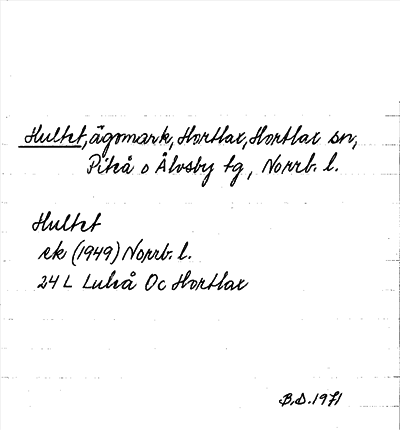 Hultet, ägomark, Hortlax, Hortlax sn,
Piteå o Älvsby tg, Norrb. l.
Hultet
ek (1949) Norrb. l.
24 L Luleå Oc Hortlax
B.D. 1971